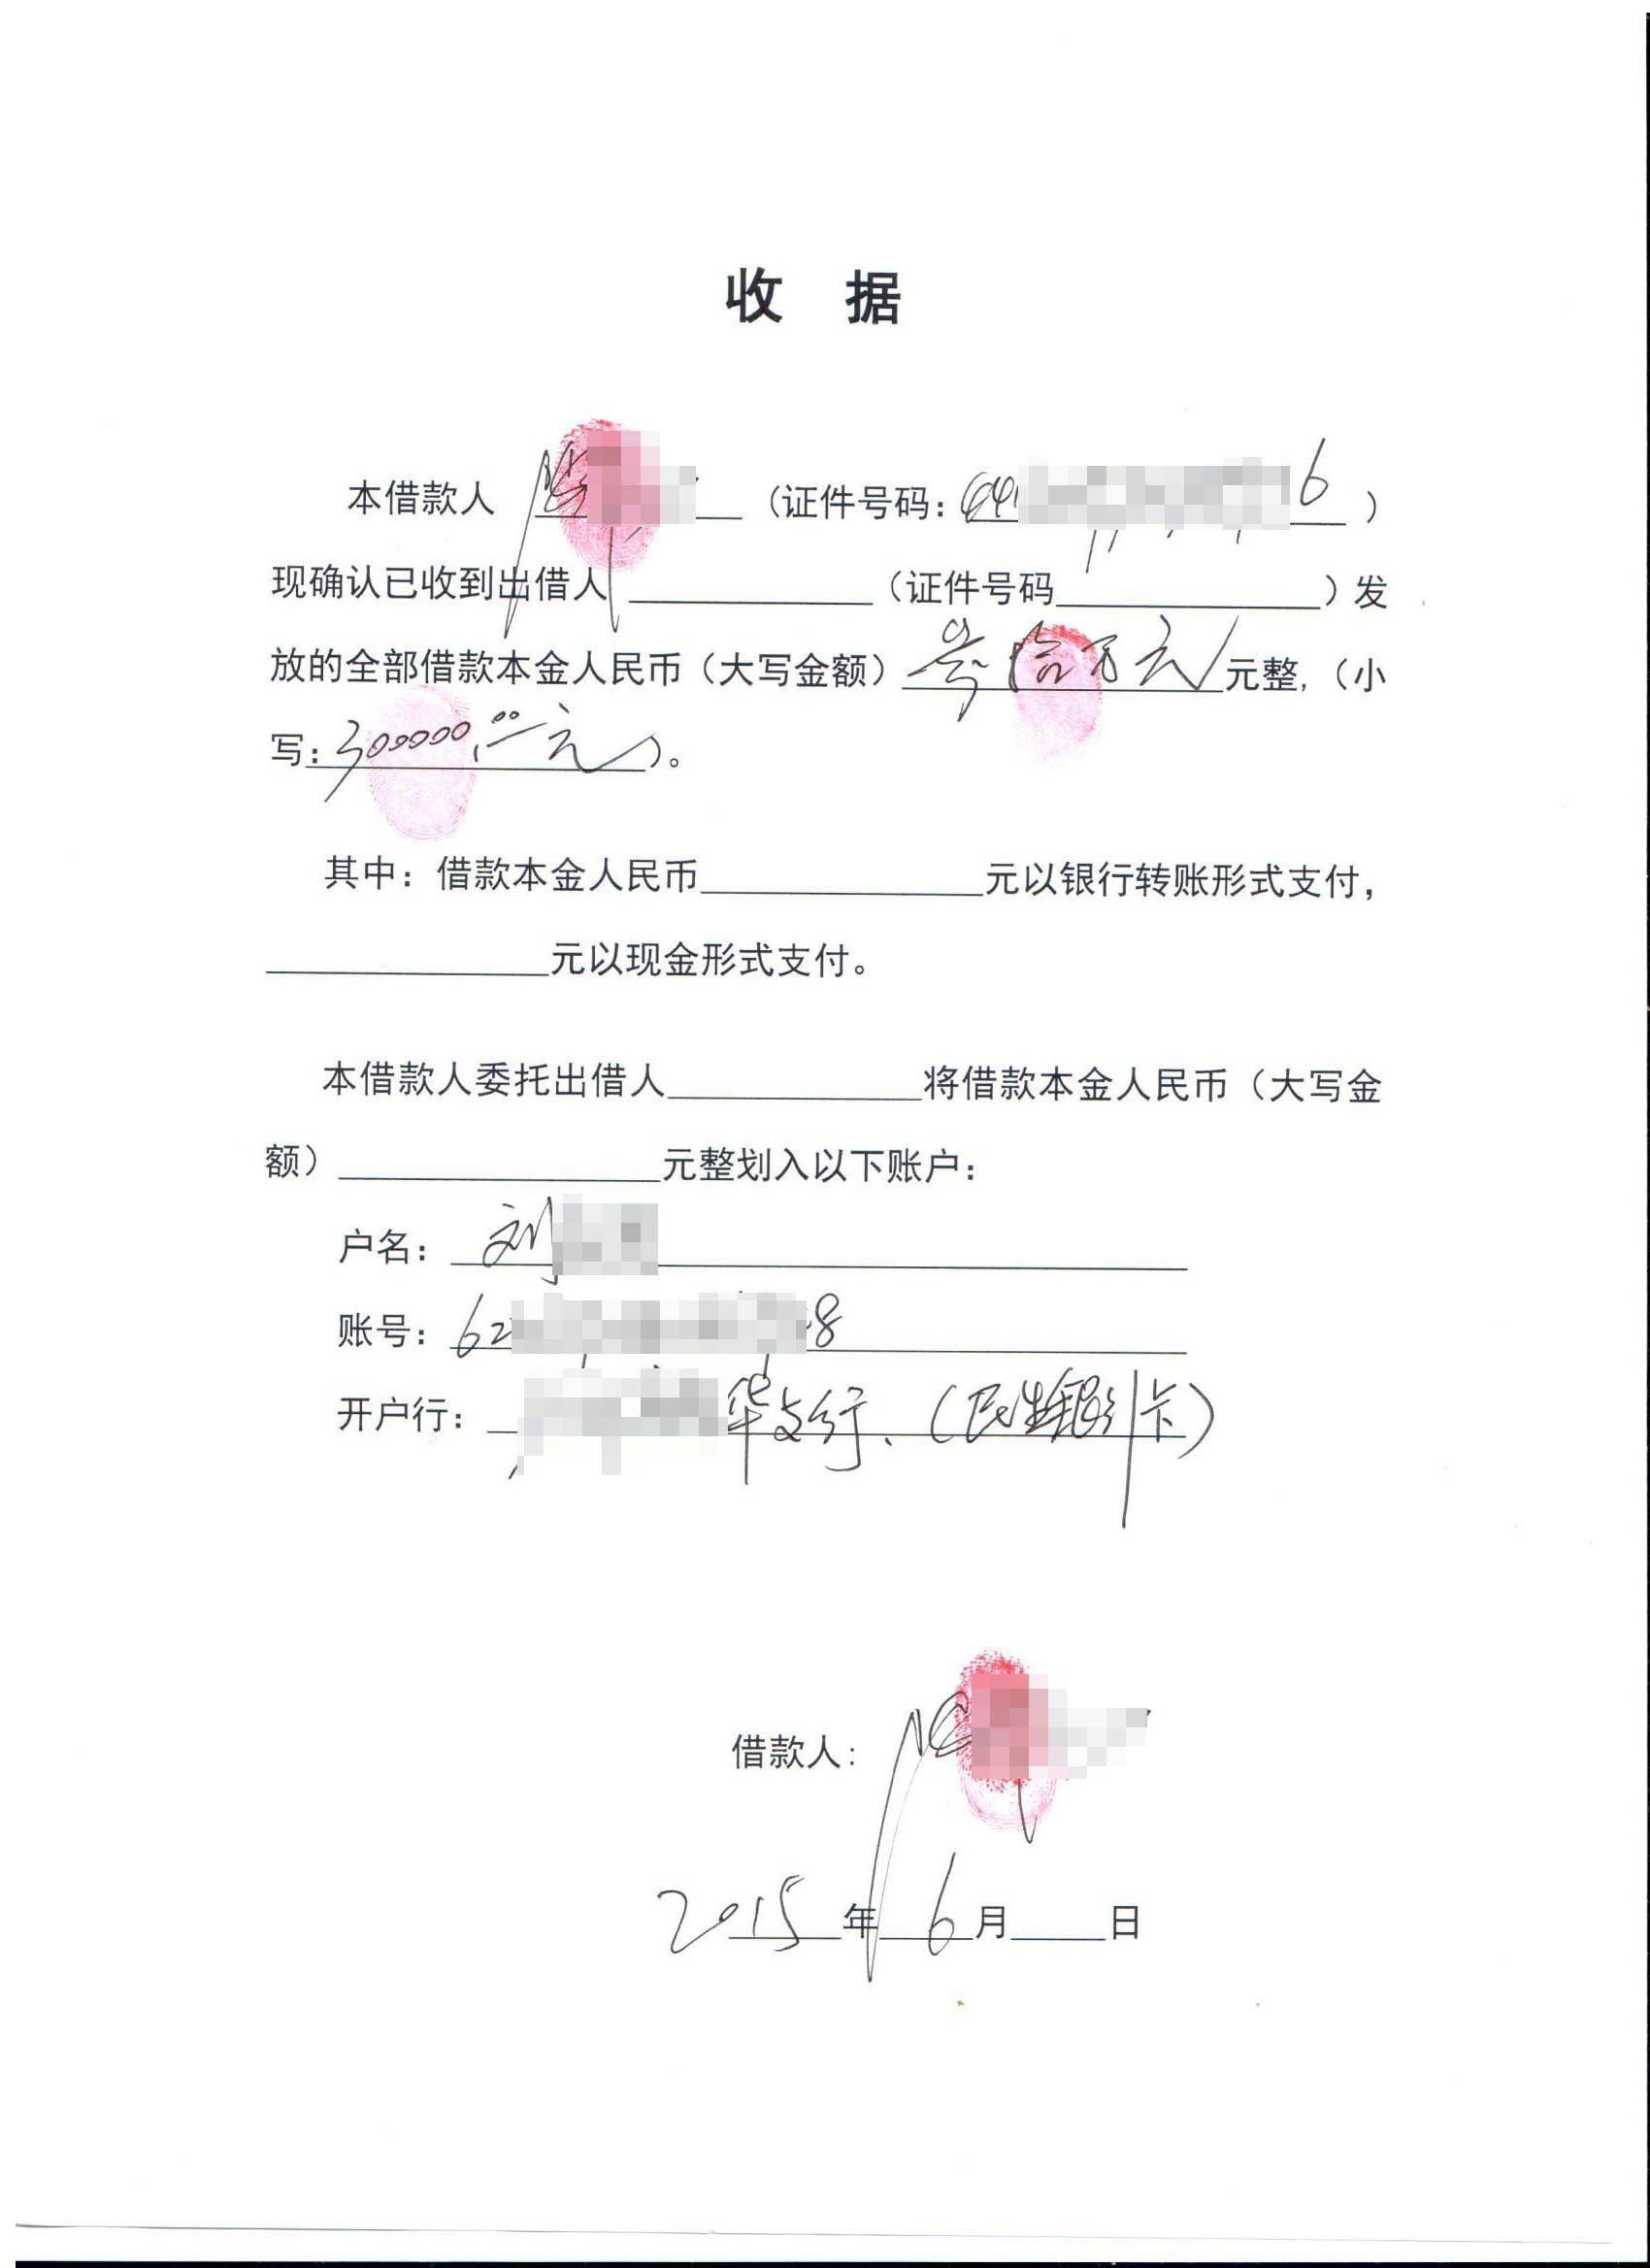 收 据
本借款人 陆 （证件号码：441 6 ）
现确认已收到出借人 （证件号码 ）发
放的全部借款本金人民币（大写金额）叁拾万元 元整,（小
写：300000.00元）。
其中：借款本金人民币 元以银行转账形式支付，
元以现金形式支付。
本借款人委托出借人 将借款本金人民币（大写金
额） 元整划入以下账户：
户名：刘
账号：62 8
开户行： 华支行、（民生银行卡）
借款人：
2015 年 6 月 日